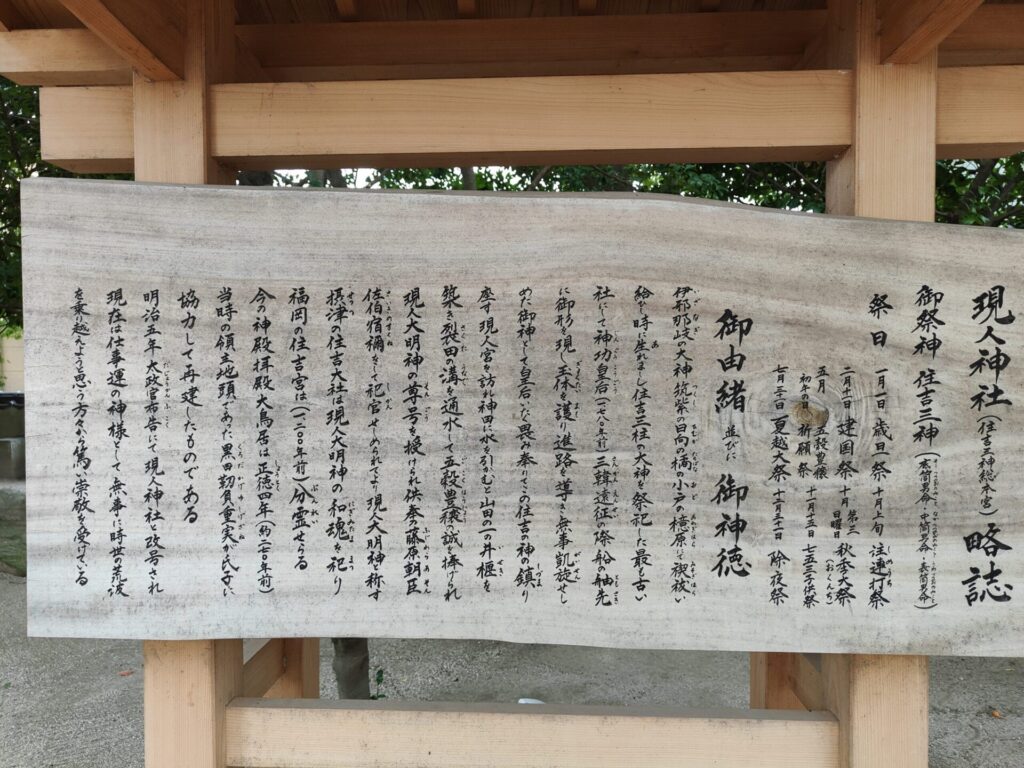 現人神社（住吉三神総本宮）略誌
御祭神 住吉三神（底筒男命・中筒男命・表筒男命）
祭日
一月一日 歳旦祭 十月上旬 注連打祭
二月十一日 建国祭 十月 第三日曜日 秋季大祭（おくんち）
五月 初午の日 五穀豊穣祈願祭 十一月十五日 七五三子供祭
七月三十一日 夏越大祭 十二月三十一日 除夜祭
御由緒 並びに 御神徳
伊邪那岐の大神筑紫の日向の橘の小戸の檍原にて禊祓い
給し時生れましし住吉三柱の大神を祭祀した最も古い
社にして神功皇后（一七八〇年前）三韓遠征の際船舳先
に御形を現し玉体を護り進路を導き無事凱旋せし
めた御神として皇后いたく畏み奉りてこの住吉の神の鎮り
座す現人宮を訪れ神田に水を引かむと山田の一の井堰を
築き裂田の溝を通水して五穀豊穣の誠を捧げられ
現人大明神の尊号を授けられ供奉の藤原朝臣
佐伯宿禰をして祀官せしめられてより現人大明神と称す
摂津の住吉大社は現人大明神の和魂を祀り
福岡の住吉宮は（一二〇〇年前）分霊せらる
今の神殿拝殿大鳥居は正徳四年（約二七〇年前）
当時の領主地頭であった黒田靱負重実が氏子と
協力して再建したものである
明治五年太政官布告にて現人神社と改号され
現在は仕事運の神様として無事に時世の荒波
を乗り越えようと思う方々から篤い崇敬を受けている